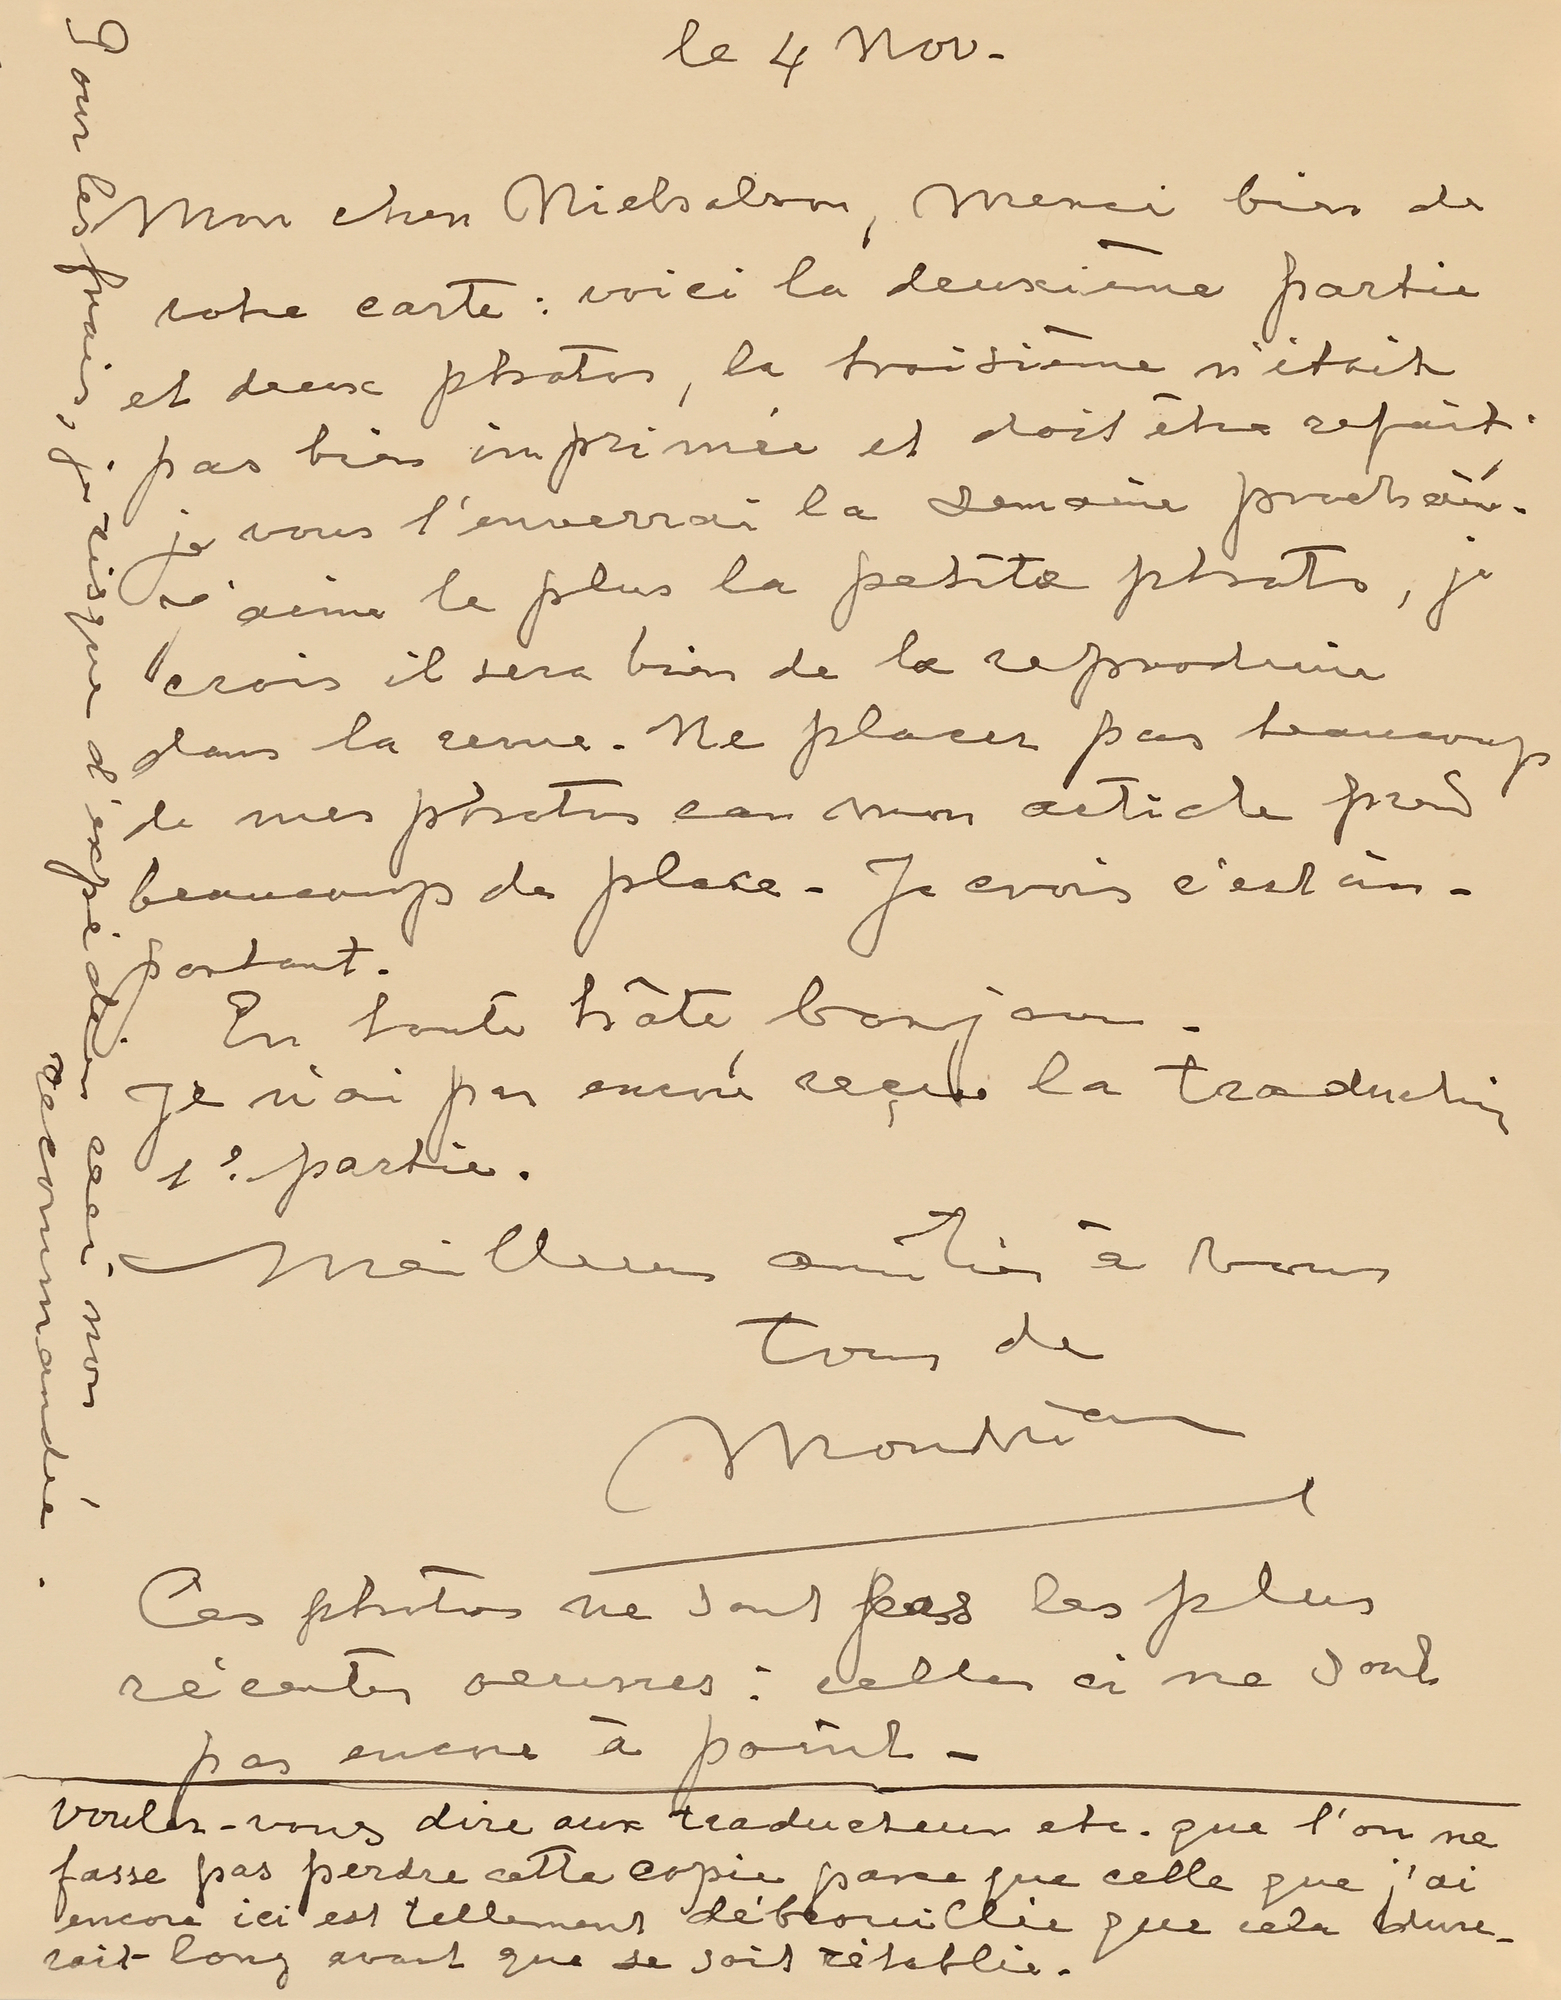 le 4 Nov.
Mon cher Nielsalson, merci bien de
votre carte : voici la deuxième partie
et deux photos, la troisième n'était
pas bien imprimée et doit être refait;
je vous l'enverrai la semaine prochaine.
J'aime le plus la petite photo, je
crois il sera bien de la reproduire
dans la revue. Ne placer pas beaucoup
de mes photos car mon article prend
beaucoup de place - Je crois c'est im-
portant.
En toute hâte, bonjour.
Je n'ai pas encore reçu la traduction
1e. partie.
Meilleures amitiés à vous
tous de
Mondrian
Ces photos ne sont pas les plus
récentes oeuvres : celles ci ne sont
pas encore à point -
Voulez-vous dire aux traducteur etc. que l'on ne
fasse pas perdre cette copie parce que celle que j'ai
encore ici est tellement débrouillée que cela dure-
rait long avant que se soit rétablie.
Pour les frais, je risque d'expédier ceci, non
recommandée.